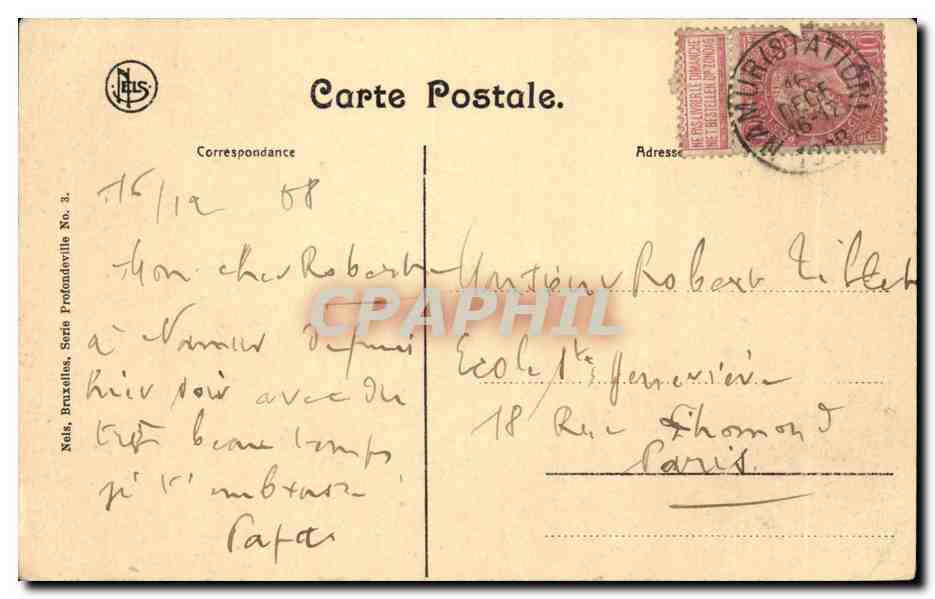 NELS
Carte Postale.
NE PAS LIVRER LE DIMANCHE
NIET BESTELLEN OP ZONDAG
10
NAMUR (STATION)
15
DECE
16-17
1908
Correspondance
Adresse
Nels, Bruxelles, Serie Profondeville No. 3.
15/12 08
Mon cher Robert
à Namur depuis
hier soir avec du
très beau temps
je t'embrasse
Papa
Monsieur Robert
Ecole Ste Geneviève
18 Rue Lhomond
Paris
CPAPHIL